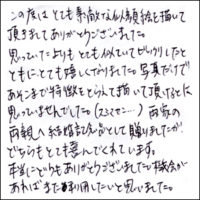 この度は とても素敵な似顔絵を描いて
頂きましてありがとうございました。
思っていたよりも とても似ていてびっくりしたと
ともにとても嬉しくなりました。写真だけで
あそこまで特徴をとらえて描いて頂けるとは
思っていませんでした。(スミマセン…) 両家の
両親へ結婚記念として贈りましたが、
どちらもとても喜んでくれています。
本当にどうもありがとうございました。機会が
あればまた利用したいと思いました。